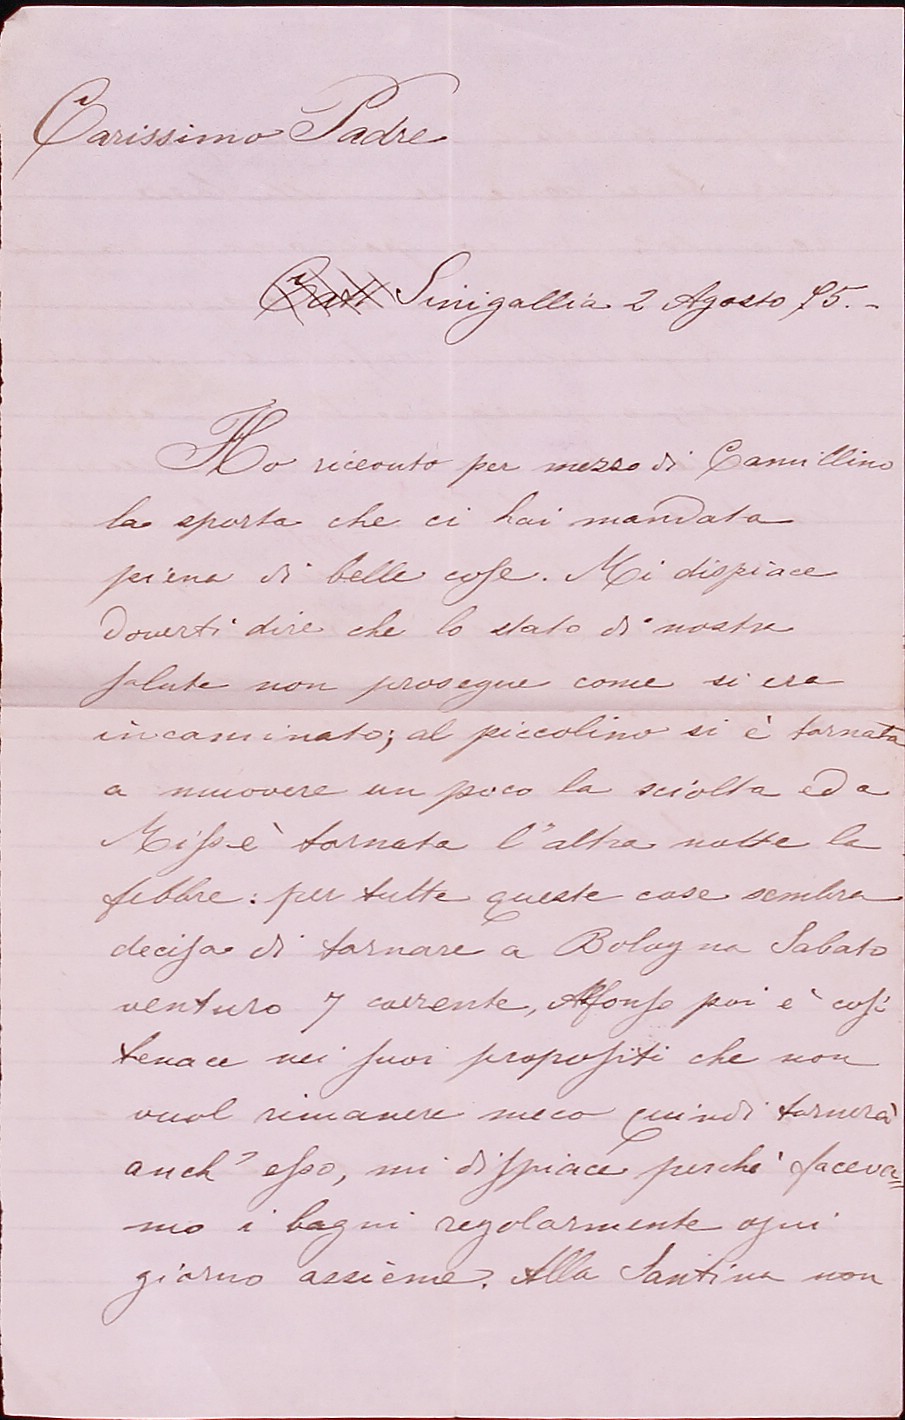 Carissimo Padre
Sinigallia 2 Agosto 75.-
Ho ricevuto per mezzo di Camillino
la sporta che ci hai mandata
piena di belle cose. Mi dispiace
doverti dire che lo stato di nostra
salute non prosegue come si era
incaminato; al piccolino si è tornata
a muovere un poco la sciolta ed a
Miss è tornata l'altra notte la
febbre: per tutte queste cose sembra
decisa di tornare a Bologna Sabato
venturo 7 corrente, Alfonso poi è così
tenace nei suoi propositi che non
vuol rimanere meco quindi tornerà
anch' esso, mi dispiace perchè faceva=
mo i bagni regolarmente ogni
giorno assieme. Alla Santina non